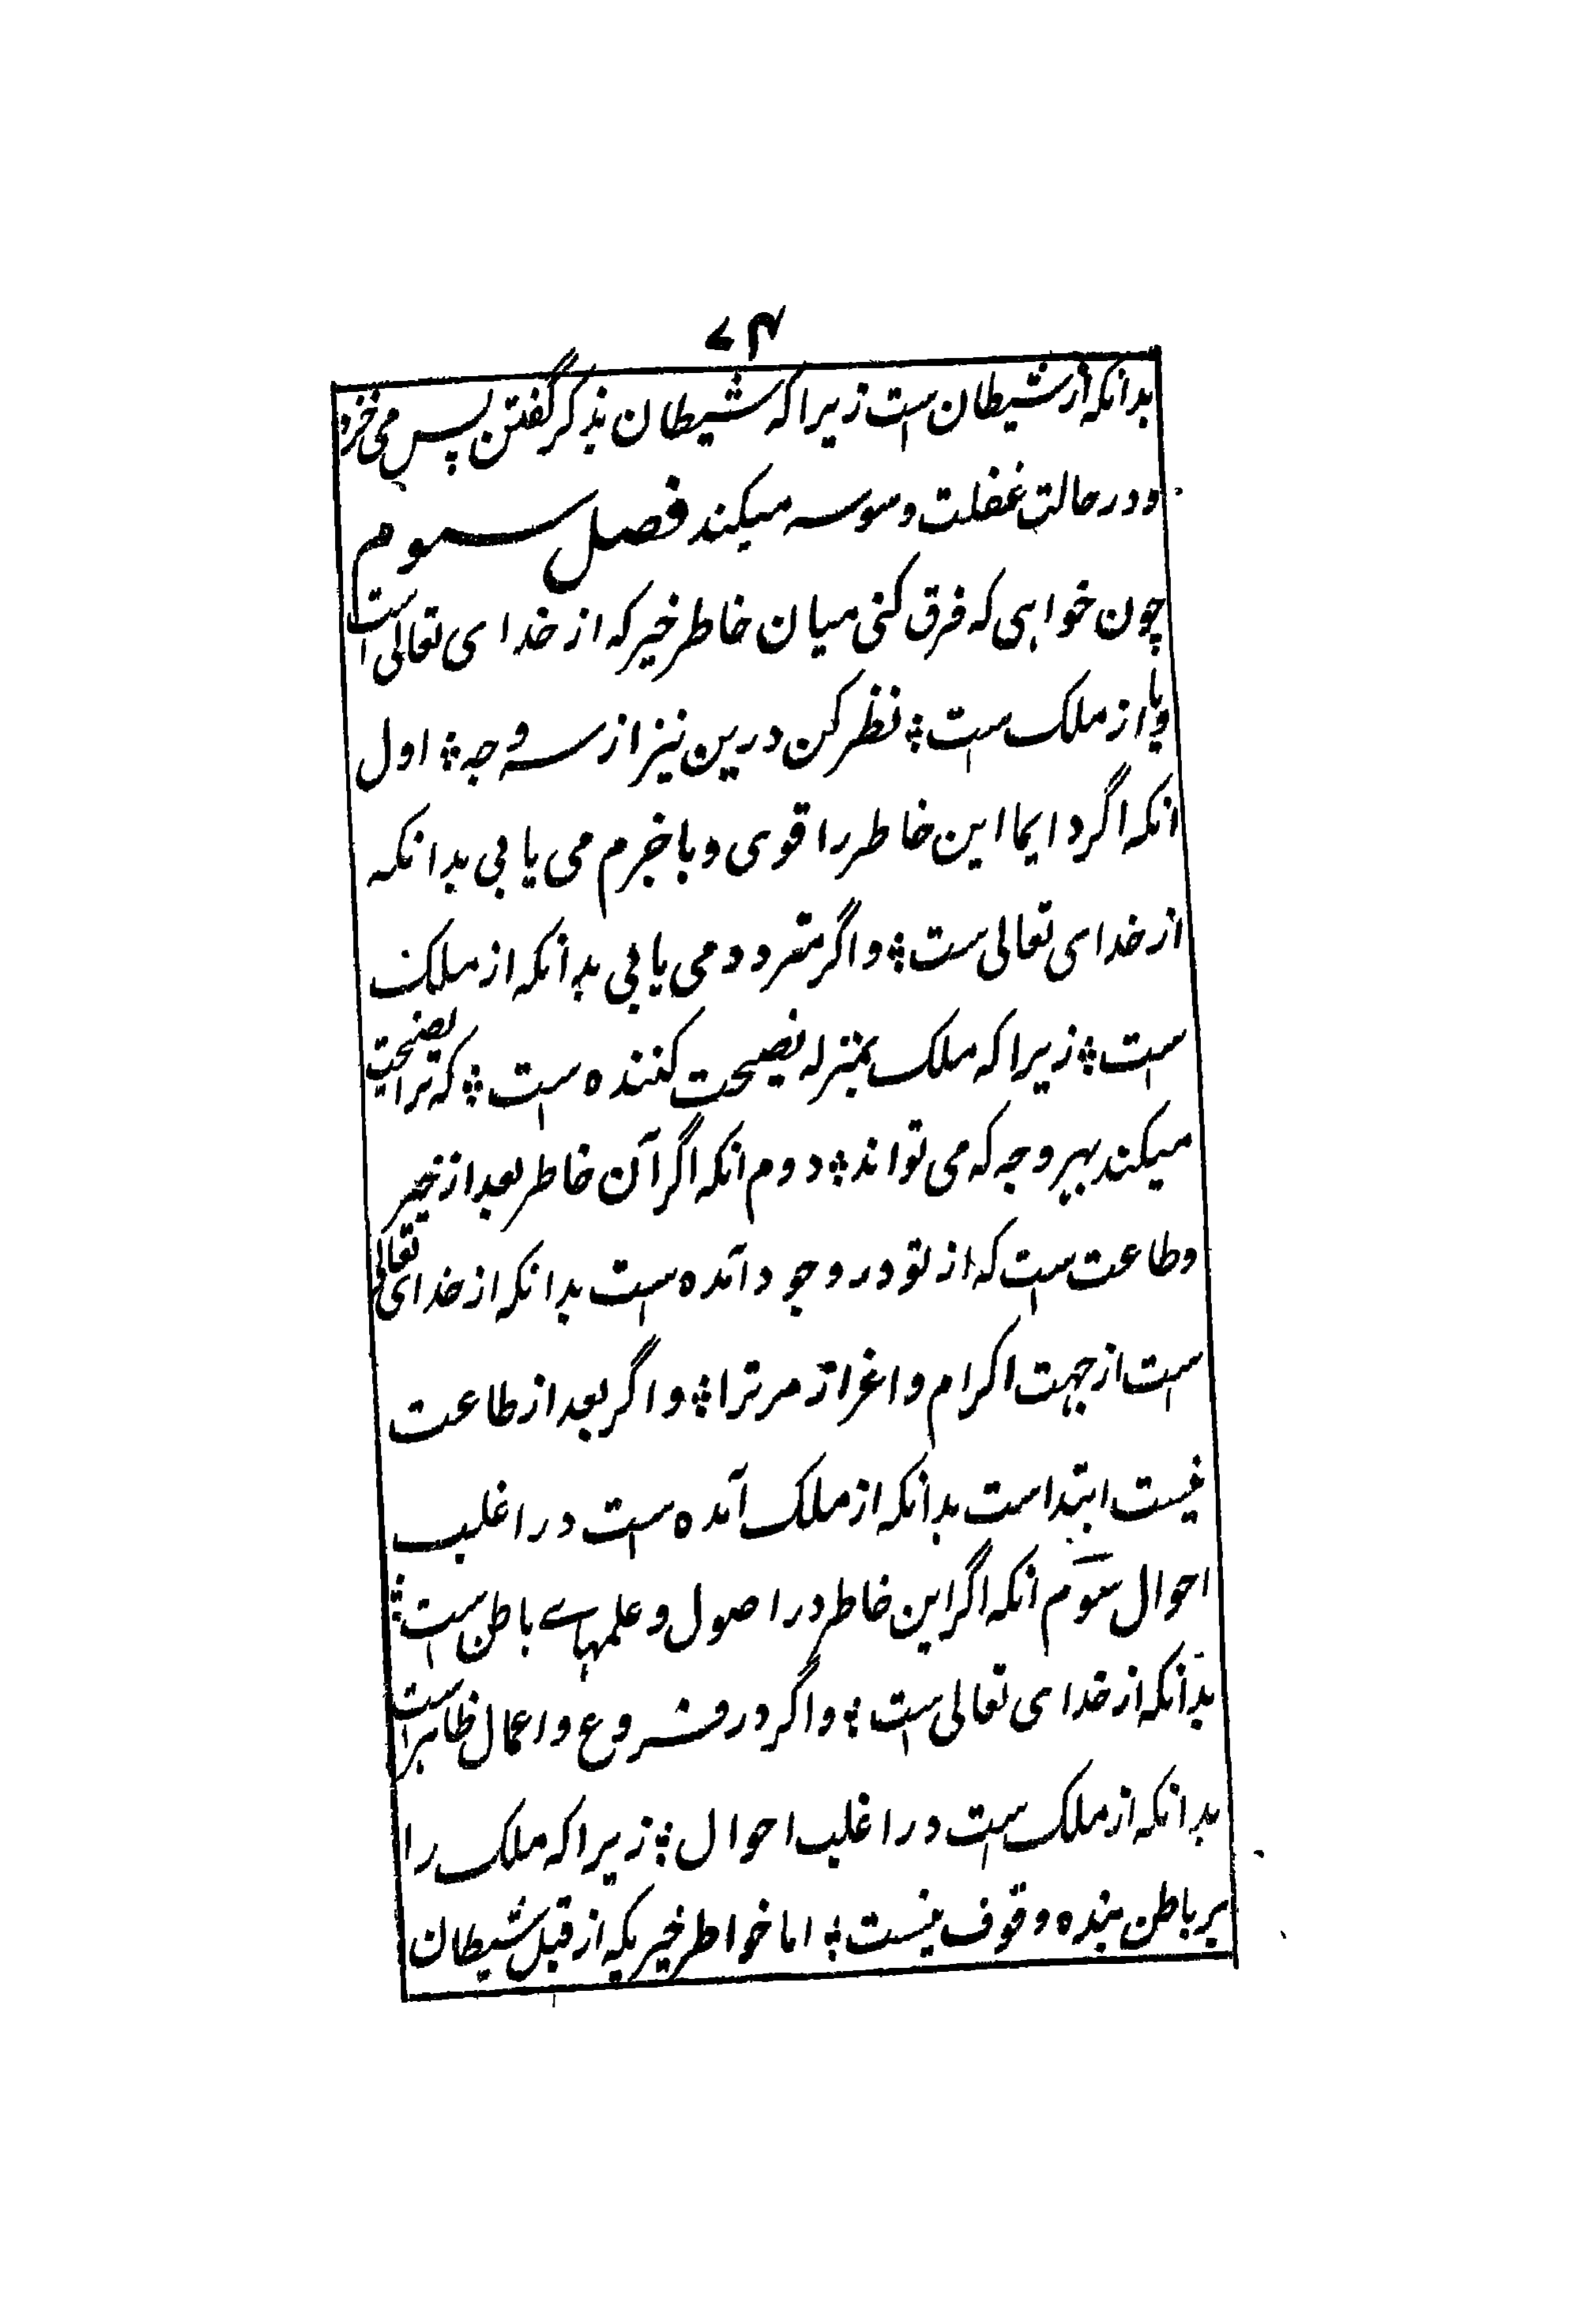 ۷۴
بدانکه از شیطان ست زیرا که شیطان بذکر گفتن پس می خزد
و در حالت غفلت وسوسه میکند فصل سوم
چون خواهی که فرق کنی میان خاطر خیر که از خدای تعالی است
ویا از ملک ست ؛ نظر کن درین نیز از سه وجه ؛ اول
انکه اگر دایما این خاطر را قوی و با جزم می یابی بدانکه
از خدای تعالی ست ؛ و اگر متردد می یابی بدانکه از ملک
ست ؛ زیرا که ملک بمنزله نصیحت کننده ست ؛ که ترا نصیحت
میکند بهر وجه که می تواند ؛ دوم انکه اگر آن خاطر بعد از خیر
و طاعت ست که از تو در وجود آمده ست بدانکه از خدای تعالی
ست از جهت اکرام و اعزاز مر ترا ؛ و اگر بعد از طاعت
نیست ابتداست بدانکه از ملک آمده ست در اغلب
احوال سوم انکه اگر این خاطر در اصول و علمهاے باطن ست ؛
بدانکه از خدای تعالی ست ؛ و اگر در فروع و اعمال ظاهر است
بدانکه از ملک ست در اغلب احوال ؛ زیرا که ملک را
بر باطن بنده وقوف نیست ؛ اما خواطر خیر یکه از قبل شیطان